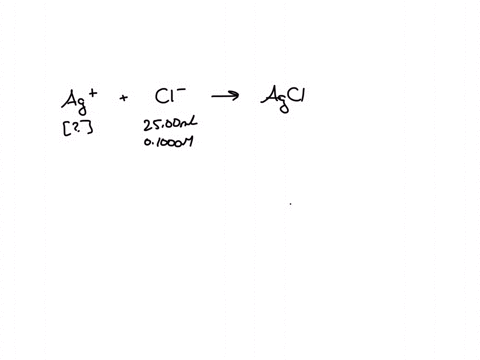 Ag⁺ + Cl⁻ → AgCl
[?] 25.00mL
0.1000M